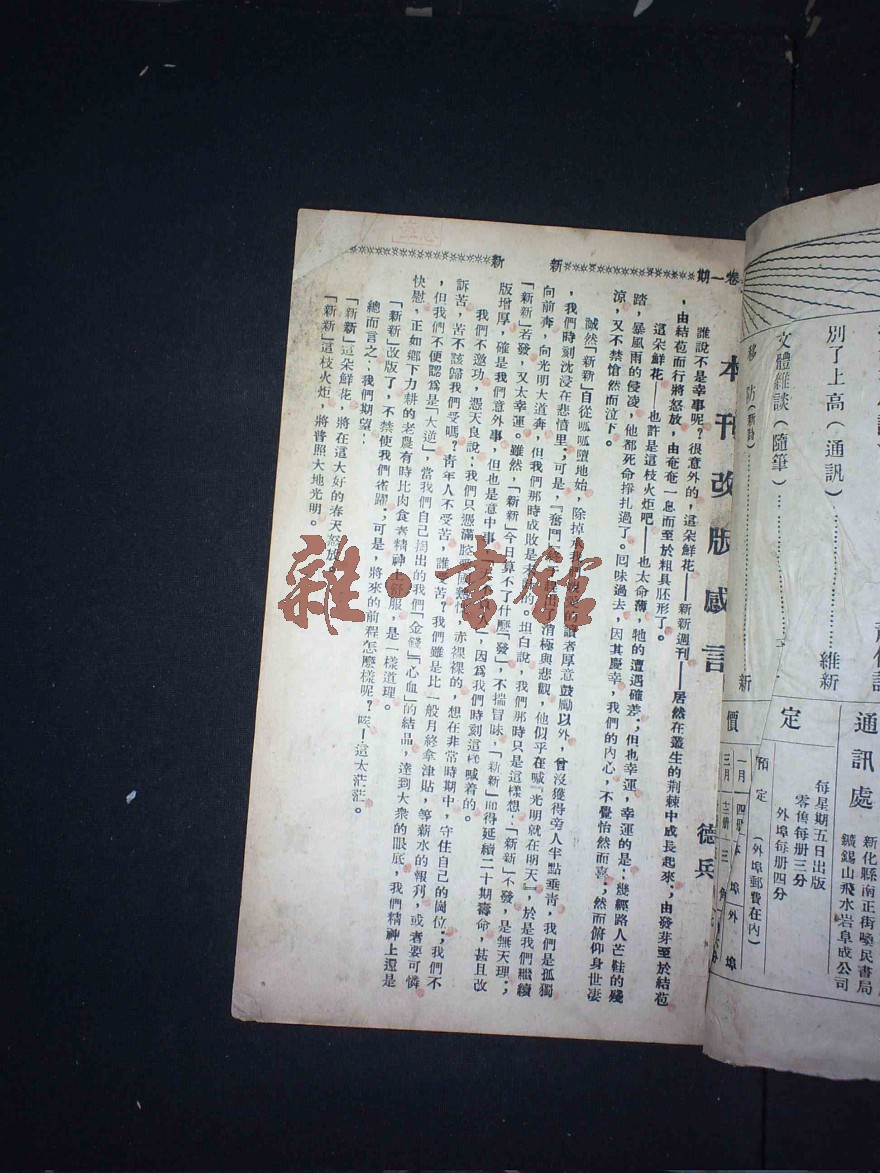 卷一期
新新
本刊改版感言
德兵
誰說不是幸事呢?很意外的,這朵鮮花——新新週刊——居然在叢生的荆棘中成長起來;由發芽至於結苞
,由結苞而行將怒放,由奄奄一息而至於粗具胚形了。
這朵鮮花——也許是這枝火炬吧——也太命薄,牠的遭遇確差;但也幸運,幸運的是:幾經路人芒鞋的殘
踏,暴風雨的侵凌,他都死命掙扎過了。囘味過去,因其慶幸,我們的內心,不覺怡然而喜;然而俯仰身世凄
涼,又不禁愴然而泣下。
誠然「新新」自從呱呱墮地始,除掉讀者厚意鼓勵以外,曾沒獲得旁人半點垂青,我們是孤獨
,我們時刻沈浸在悲憤里。可是,「奮鬥」消極與悲觀,他似乎在喊『光明就在明天』,於是我們繼續
向前奔,向光明大道奔,但我們那時成敗是未的。坦白說,我們那時只是這樣想:「新新」不發,是無天理;
「新新」若發,又太幸運。雖然,「新新」今日算不了什麼「發」,不揣冒昧,「新新」而得延續二十期壽命,甚且改
版增厚,確是我們意外事,但也是意中事,因爲我們時刻這樣喊着的。
我們不邀功,憑天良說:我們只憑滿腔赤裸裸的,想在非常時期中,守住自己的崗位;我們不
訴苦,苦不該歸我們受嗎?青年人不受苦,誰受苦?我們雖是比一般月終拿津貼,等薪水的報刋,或者要可憐
,但我們不便認爲是「大逆」,當我們自己掏出的我們「金錢」「心血」的結晶,達到大衆的眼底,我們精神上還是
快慰,正如鄉下力耕的老農有時比肉食者精神上舒服,是一樣道理。
「新新」改版了,不禁使我們雀躍;可是,將來的前程怎麼樣呢?唉!這太茫茫。
總而言之:我們期望:
「新新」這朵鮮花,將在這大好的春天怒放
「新新」這枝火炬,將普照大地光明。
別了上高(通訊)……維新
文體雜談(隨筆)
移防
新
定價
預定(外埠郵費在內)
一月
四册
本埠
外埠
三月
三角
每星期五日出版
零售每册三分
外埠每册四分
通訊處
新化縣南正街喚民書局
鑛錫山飛水岩阜成公司
雜·書館